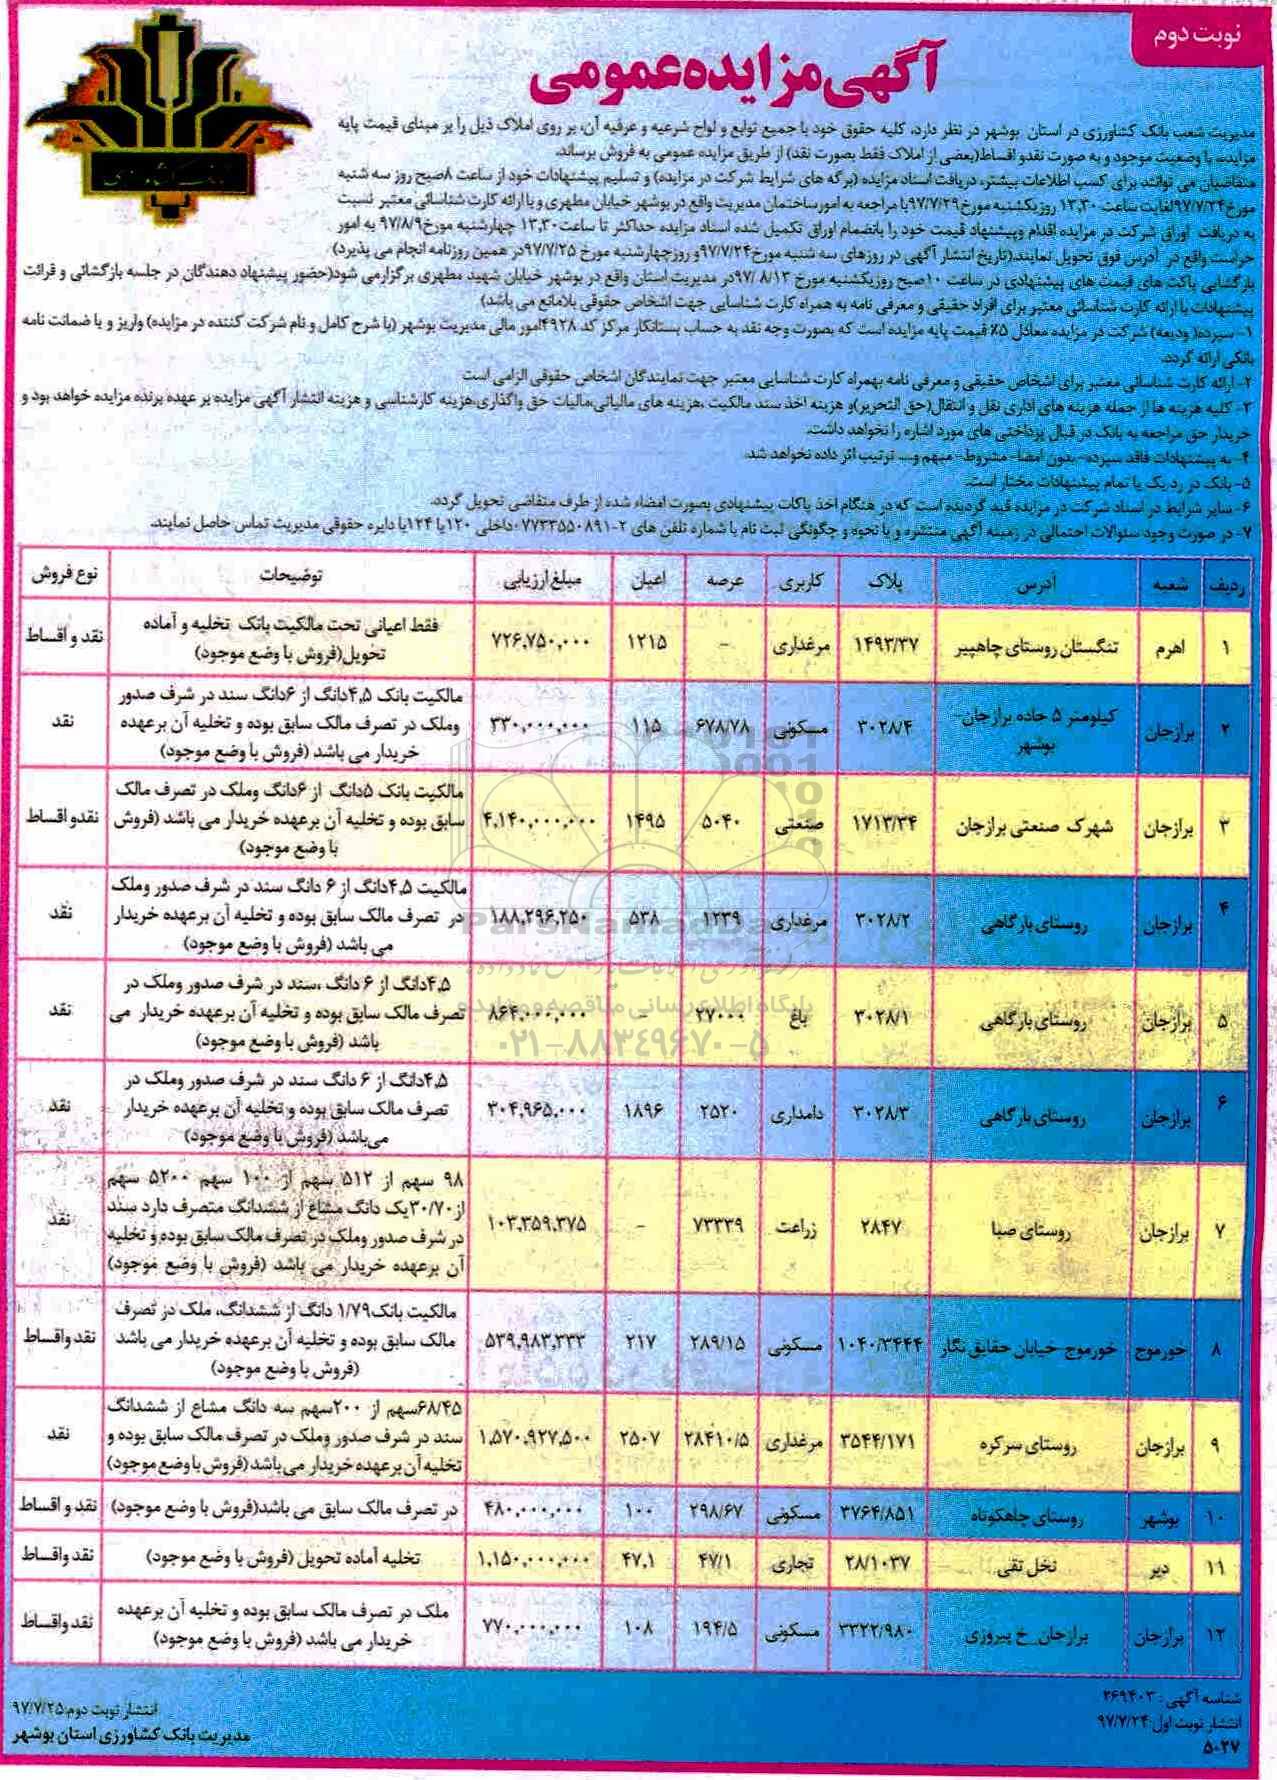 نوبت دوم
آگهی مزایده عمومی
بانک کشاورزی
مدیریت شعب بانک کشاورزی در استان بوشهر در نظر دارد، کلیه حقوق خود با جمیع توابع و لواح شرعیه و عرفیه آن، بر روی املاک ذیل را بر مبنای قیمت پایه
مزایده، با وضعیت موجود و به صورت نقدو اقساط(بعضی از املاک فقط بصورت نقد) از طریق مزایده عمومی به فروش برساند.
متقاضیان می توانند برای کسب اطلاعات بیشتر، دریافت اسناد مزایده (برگه های شرایط شرکت در مزایده) و تسلیم پیشنهادات خود از ساعت ۸صبح روز سه شنبه
مورخ۹۷/۷/۲۴لغایت ساعت ۱۳,۳۰ روزیکشنبه مورخ۹۷/۷/۲۹با مراجعه به امورساختمان مدیریت واقع در بوشهر خیابان مطهری و با ارائه کارت شناسائی معتبر نسبت
به دریافت اوراق شرکت در مزایده اقدام وپیشنهاد قیمت خود را بانضمام اوراق تکمیل شده اسناد مزایده حداکثر تا ساعت۱۳,۳۰ چهارشنبه مورخ۹۷/۸/۹ به امور
حراست واقع در آدرس فوق تحویل نمایند.(تاریخ انتشار آگهی در روزهای سه شنبه مورخ۹۷/۷/۲۴و روزچهارشنبه مورخ ۹۷/۷/۲۵در همین روزنامه انجام می پذیرد)
بازگشایی پاکت های قیمت های پیشنهادی در ساعت ۱۰صبح روزیکشنبه مورخ ۹۷/۸/۱۳در مدیریت استان واقع در بوشهر خیابان شهید مطهری برگزارمی شود(حضور پیشنهاد دهندگان در جلسه بازگشائی و قرائت
پیشنهادات با ارائه کارت شناسائی معتبر برای افراد حقیقی و معرفی نامه به همراه کارت شناسایی جهت اشخاص حقوقی بلامانع می باشد)
۱- سپرده( ودیعه) شرکت در مزایده معادل ۵٪ قیمت پایه مزایده است که بصورت وجه نقد به حساب بستانکار مرکز کد ۴۹۲۸امور مالی مدیریت بوشهر (با شرح کامل و نام شرکت کننده در مزایده) واریز و یا ضمانت نامه
بانکی ارائه گردد.
۲- ارائه کارت شناسائی معتبر برای اشخاص حقیقی و معرفی نامه بهمراه کارت شناسایی معتبر جهت نمایندگان اشخاص حقوقی الزامی است
۳- کلیه هزینه ها از جمله هزینه های اداری نقل و انتقال(حق التحریر)و هزینه اخذ سند مالکیت ،هزینه های مالیاتی،مالیات حق واگذاری،هزینه کارشناسی و هزینه انتشار آگهی مزایده بر عهده برنده مزایده خواهد بود و
خریدار حق مراجعه به بانک در قبال پرداختی های مورد اشاره را نخواهد داشت.
۴- به پیشنهادات فاقد سپرده- بدون امضا- مشروط- مبهم و... ترتیب اثر داده نخواهد شد.
۵- بانک در رد یک یا تمام پیشنهادات مختار است.
۶- سایر شرایط در اسناد شرکت در مزایده قید گردیده است که در هنگام اخذ پاکات پیشنهادی بصورت امضاء شده از طرف متقاضی تحویل گردد.
۷- در صورت وجود سئوالات احتمالی در زمینه آگهی منتشره و یا نحوه و چگونگی ثبت نام با شماره تلفن های ۲-۰۷۷۳۳۵۵۰۸۹۱داخلی ۱۲۰یا ۱۲۴یا دایره حقوقی مدیریت تماس حاصل نمایند.
ردیف شعبه آدرس پلاک کاربری عرصه اعیان مبلغ ارزیابی توضیحات نوع فروش
۱ اهرم تنگستان روستای چاهپیر ۱۴۹۳/۳۷ مرغداری - ۱۲۱۵ ۷۲۶,۷۵۰,۰۰۰ فقط اعیانی تحت مالکیت بانک تخلیه و آماده نقد و اقساط
تحویل(فروش با وضع موجود)
۲ برازجان کیلومتر ۵ جاده برازجان- بوشهر ۳۰۲۸/۴ مسکونی ۶۷۸/۷۸ ۱۱۵ ۳۳۰,۰۰۰,۰۰۰ مالکیت بانک ۴,۵دانگ از ۶دانگ سند در شرف صدور نقد
وملک در تصرف مالک سابق بوده و تخلیه آن برعهده
خریدار می باشد (فروش با وضع موجود)
۳ برازجان شهرک صنعتی برازجان ۱۷۱۳/۳۴ صنعتی ۵۰۴۰ ۱۴۹۵ ۴,۱۴۰,۰۰۰,۰۰۰ مالکیت بانک ۵دانگ از ۶دانگ وملک در تصرف مالک نقدو اقساط
سابق بوده و تخلیه آن برعهده خریدار می باشد (فروش
با وضع موجود)
۴ برازجان روستای بارگاهی ۳۰۲۸/۲ مرغداری ۱۲۳۹ ۵۳۸ ۱۸۸,۲۹۶,۲۵۰ مالکیت ۴,۵دانگ از ۶ دانگ سند در شرف صدور وملک نقد
در تصرف مالک سابق بوده و تخلیه آن برعهده خریدار
می باشد (فروش با وضع موجود)
۵ برازجان روستای بارگاهی ۳۰۲۸/۱ باغ ۲۷۰۰۰ - ۸۶۴,۰۰۰,۰۰۰ ۴,۵دانگ از ۶ دانگ ،سند در شرف صدور وملک در نقد
تصرف مالک سابق بوده و تخلیه آن برعهده خریدار می
باشد (فروش با وضع موجود)
۶ برازجان روستای بارگاهی ۳۰۲۸/۳ دامداری ۲۵۲۰ ۱۸۹۶ ۳۰۴,۹۶۵,۰۰۰ ۴,۵دانگ از ۶ دانگ سند در شرف صدور وملک در نقد
تصرف مالک سابق بوده و تخلیه آن برعهده خریدار
می‌باشد (فروش با وضع موجود)
۷ برازجان روستای صبا ۲۸۴۷ زراعت ۷۳۳۳۹ - ۱۰۳,۳۵۹,۳۷۵ ۹۸ سهم از ۵۱۲ سهم از ۱۰۰ سهم ۵۲۰۰ سهم نقد
از ۳۰/۷۰یک دانگ مشاع از ششدانگ متصرف دارد سند
در شرف صدور وملک در تصرف مالک سابق بوده و تخلیه
آن برعهده خریدار می باشد (فروش با وضع موجود)
۸ خورموج خورموج- خیابان حقایق نگار ۱۰۴۰/۳۴۴۴ مسکونی ۲۸۹/۱۵ ۲۱۷ ۵۳۹,۹۸۳,۳۳۳ مالکیت بانک۱/۷۹ دانگ از ششدانگ، ملک در تصرف نقد واقساط
مالک سابق بوده و تخلیه آن برعهده خریدار می باشد
(فروش با وضع موجود)
۹ برازجان روستای سرکره ۳۵۴۴/۱۷۱ مرغداری ۲۸۴۱۰/۵ ۲۵۰۷ ۱,۵۷۰,۹۲۷,۵۰۰ ۶۸/۴۵سهم از ۲۰۰سهم سه دانگ مشاع از ششدانگ نقد
سند در شرف صدور وملک در تصرف مالک سابق بوده و
تخلیه آن برعهده خریدار می باشد (فروش با وضع موجود)
۱۰ بوشهر روستای چاهکوتاه ۳۷۶۴/۸۵۱ مسکونی ۲۹۸/۶۷ ۱۰۰ ۴۸۰,۰۰۰,۰۰۰ در تصرف مالک سابق می باشد(فروش با وضع موجود) نقد و اقساط
۱۱ دیر نخل تقی ۲۸/۱۰۳۷ تجاری ۴۷/۱ ۴۷,۱ ۱,۱۵۰,۰۰۰,۰۰۰ تخلیه آماده تحویل (فروش با وضع موجود) نقد واقساط
۱۲ برازجان برازجان_خ پیروزی ۳۳۲۲/۹۸۰ مسکونی ۱۹۴/۵ ۱۰۸ ۷۷۰,۰۰۰,۰۰۰ ملک در تصرف مالک سابق بوده و تخلیه آن برعهده نقد واقساط
خریدار می باشد (فروش با وضع موجود)
ParsNamadData
پایگاه اطلاع رسانی مناقصه و مزایده
۰۲۱-۸۸۳۴۹۶۷۰-۵
شناسه آگهی : ۲۶۹۴۰۳
انتشار نوبت اول:۹۷/۷/۲۴
۵۰۲۷
انتشار نوبت دوم:۹۷/۷/۲۵
مدیریت بانک کشاورزی استان بوشهر